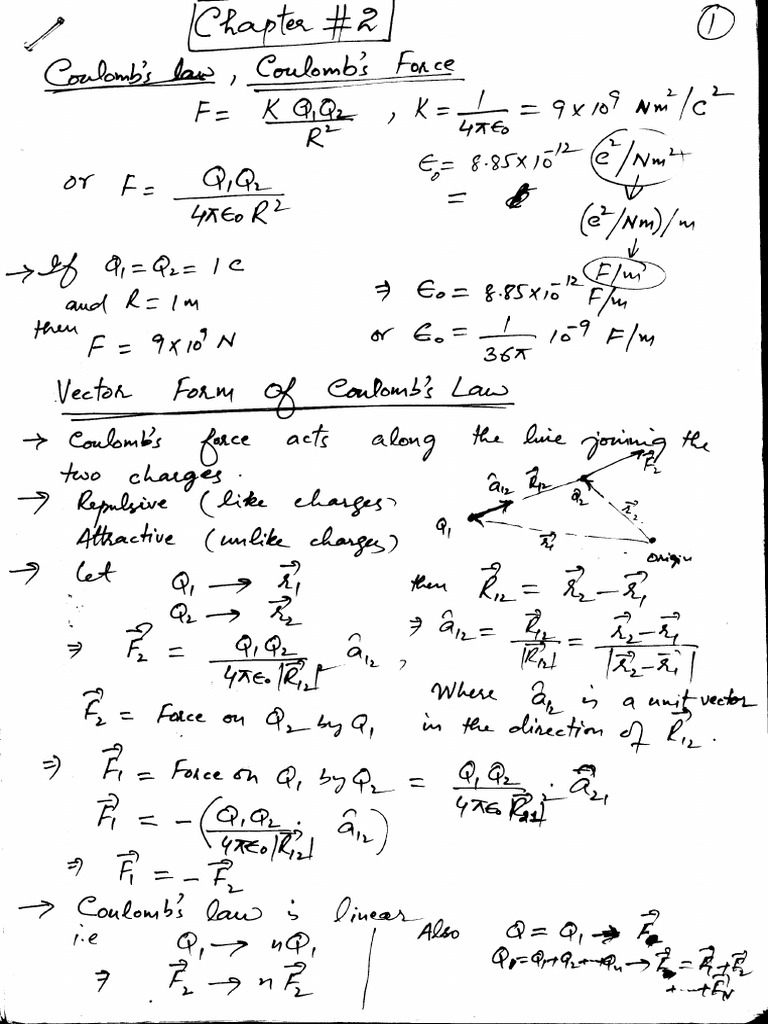 Chapter #2
1
Coulomb's law, Coulomb's Force
F = K Q₁Q₂ / R² , K = 1 / 4πϵ₀ = 9×10⁹ Nm²/C²
ϵ₀ = 8.85×10⁻¹² (c²/Nm²)
or F = Q₁Q₂ / 4πϵ₀R²
=
(c²/Nm)/m
F/m
→ If Q₁ = Q₂ = 1c
and R = 1m
⇒ ϵ₀ = 8.85×10⁻¹² F/m
then F = 9×10⁹ N
or ϵ₀ = 1 / 36π 10⁻⁹ F/m
Vector Form of Coulomb's Law
→ Coulomb's force acts along the line joining the
two charges.
→ Repulsive (like charges)
Attractive (unlike charges)
Q₁ â₁₂ R⃗₁₂ Q₂ F⃗₂ r⃗₂ r⃗₁ origin
→ Let Q₁ → r⃗₁ then R⃗₁₂ = r⃗₂ − r⃗₁
Q₂ → r⃗₂
⇒ â₁₂ = R⃗₁₂ / |R⃗₁₂| = r⃗₂ − r⃗₁ / |r⃗₂ − r⃗₁|
⇒ F⃗₂ = Q₁Q₂ / 4πϵ₀|R⃗₁₂|² â₁₂ ,
Where â₁₂ is a unit vector
in the direction of R⃗₁₂.
F⃗₂ = Force on Q₂ by Q₁
⇒ F⃗₁ = Force on Q₁ by Q₂ = Q₁Q₂ / 4πϵ₀|R⃗₂₁|² · a⃗₂₁
F⃗₁ = −(Q₁Q₂ / 4πϵ₀|R⃗₁₂|² â₁₂)
⇒ F⃗₁ = −F⃗₂
→ Coulomb's law is linear
i.e Q₁ → nQ₁
⇒ F⃗₂ → nF⃗₂
Also Q = Q₁ → F⃗
Q = Q₁+Q₂+⋯+Qₙ → F⃗ = F⃗₁+F⃗₂
+⋯+F⃗N